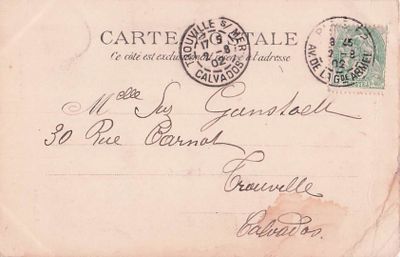 CARTE POSTALE
Ce côté est exclusivement réservé à l'adresse
TROUVILLE S/ MER
17 5
2 - 8
02
CALVADOS
8 45
2 - 8
02
AV. DE LA GDE ARMEE
Melle Sus
30 Rue Carnot
Trouville
Calvados.